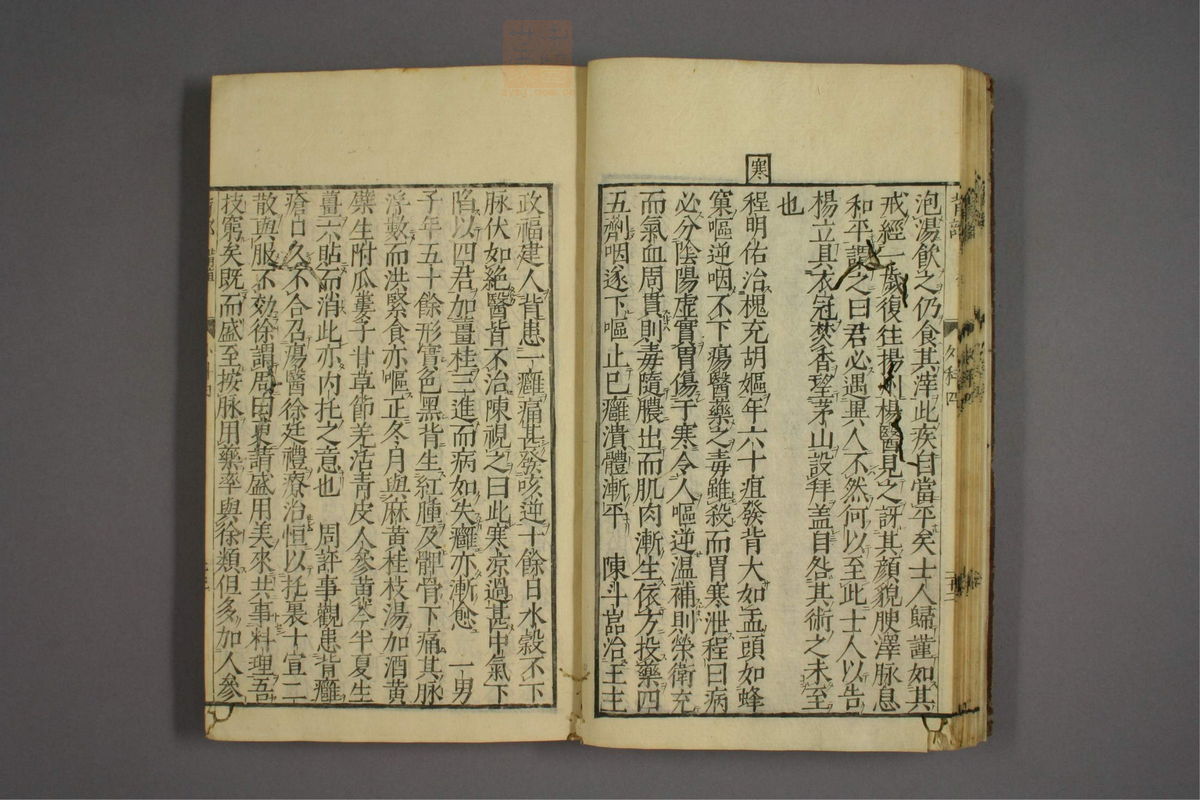 泡湯飲之仍食其滓此疾自當平矣士人歸謹如其
戒經一歲復往揚州楊醫見之訝其顏貌腴澤脉息
和平謂之曰君必遇異人不然何以至此士人以告
楊立具衣冠焚香望茅山設拜盖自咎其術之未至
也
寒
程明佑治槐充胡嫗年六十疽發背大如盂頭如蜂
窠嘔逆咽不下瘍醫藥之毒雖殺而胃寒泄程曰病
必分陰陽虛實胃傷于寒令人嘔逆温補則榮衛充
而氣血周貫則毒隨膿出而肌肉漸生依方投藥四
五劑咽遂下嘔止已癰潰體漸平 陳斗嵓治王主
政福建人背患一癰痛甚發咳逆十餘日水穀不下
脉伏如絶醫皆不治陳視之曰此寒凉過甚中氣下
陷以四君加薑桂三進而病如失癰亦漸愈 一男
子年五十餘形實色黑背生紅腫及髀骨下痛其脉
浮數而洪緊食亦嘔正冬月與麻黄桂枝湯加酒黄
檗生附瓜蔞子甘草節羌活青皮人參黄芩半夏生
薑六貼而消此亦内托之意也 周評事觀患背癰
瘡口久不合召瘍醫徐廷禮療治恒以托裏十宣二
散與服不効徐謂周曰更請盛用美來共事料理吾
技窮矣既而盛至按脉用藥率與徐類但多加人參